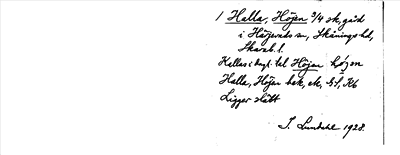 1 Halla, Höjen 3/4 sk, gård
i Härjevads sn, Skånings hd,
Skarab. l.
Kallas i dagl. tal Höjen
Halla, Höjen bek, ek,
Ligger slätt
I. Lundahl 1928.